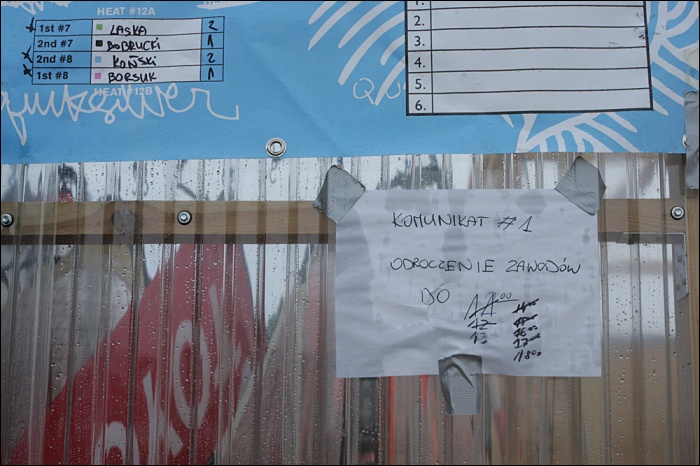 HEAT #12A
1st #7 LASKA 2
2nd #7 DOBRUCKI 1
2nd #8 KOŃSKI 2
1st #8 BORSUK 1
HEAT #12B
quiksilver
1.
2.
3.
4.
5.
6.
KOMUNIKAT #1
ODROCZENIE ZAWODÓW
DO 11:00
12
13
17
18:00